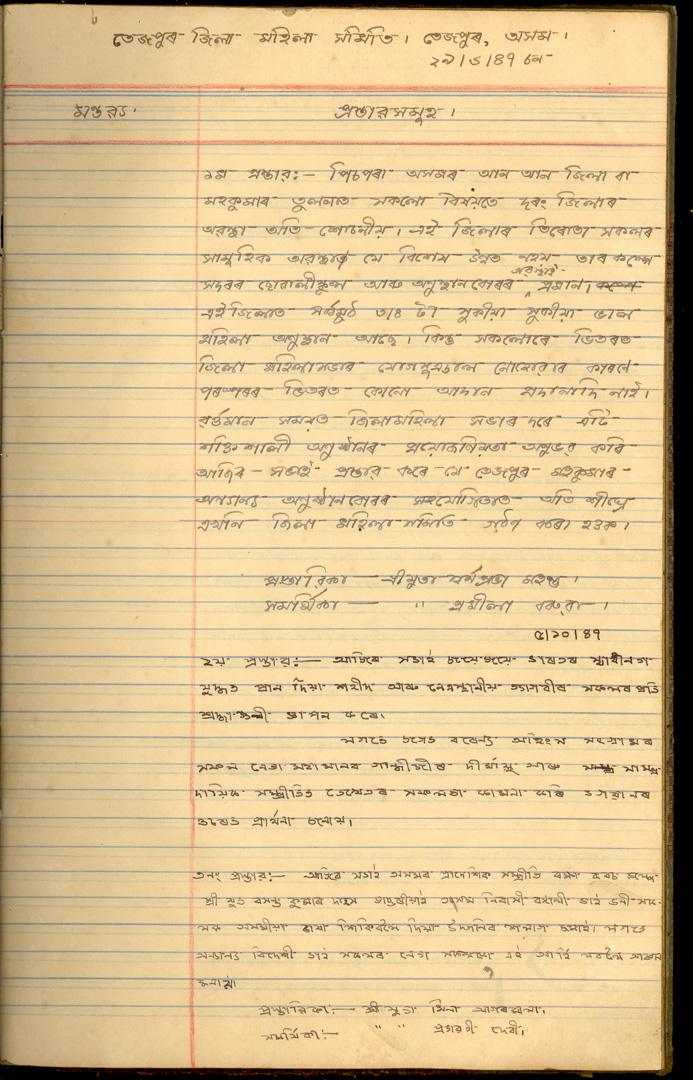 তেজপুৰ জিলা মহিলা সমিতি। তেজপুৰ, অসম।
২৯/৬/47 চন
মন্তব্য।
প্ৰস্তাৱসমূহ।
১ম প্ৰস্তাৱ:— পিচপৰা অসমৰ আন আন জিলা বা
মহকুমাৰ তুলনাত সকলো বিষয়তে দৰং জিলাৰ
অৱস্থা অতি শোচনীয়। এই জিলাৰ তিৰোতা সকলৰ
সামূহিক অৱস্থাও যে বিশেষ উন্নত নহয় তাৰ
সদৰৰ ছোৱালীস্কুল আৰু অনুষ্ঠানবোৰৰ অৱস্থাই প্ৰমাণ।
এই জিলাত সৰ্ব্বমুঠ ৩/৪ টা সুকীয়া সুকীয়া ভাল
মহিলা অনুষ্ঠান আছে। কিন্তু সকলোৰে ভিতৰত
জিলা মহিলা সভাৰ যোগসূত্ৰডাল নোহোৱাৰ কাৰণে
পৰস্পৰৰ ভিতৰত কোনো আদান প্ৰদানাদি নাই।
বৰ্ত্তমান সময়ত জিলামহিলা সভাৰ দৰে এটি
শক্তিশালী অনুষ্ঠানৰ প্ৰয়োজনিয়তা অনুভৱ কৰি
আজিৰ সভাই প্ৰস্তাৱ কৰে যে তেজপুৰ মহকুমাৰ
অন্যান্য অনুষ্ঠানবোৰৰ সহযোগিতাত অতি শীঘ্ৰে
এখনি জিলা মহিলা সমিতি গঠন কৰা হওক।
প্ৰস্তাৱিকা — শ্ৰীযুতা স্বৰ্ণপ্ৰভা মহন্ত।
সমৰ্থিকা — " প্ৰমীলা বৰুৱা।
৫/১০/47
২য় প্ৰস্তাৱ:— আজিৰ সভাই ভাৰতৰ স্বাধীনতা
যুদ্ধত প্ৰাণ দিয়া শহীদ আৰু নেতৃস্থানীয় ত্যাগবীৰ সকলৰ প্ৰতি
শ্ৰদ্ধাঞ্জলী জ্ঞাপন কৰে।
লগতে জগত বৰেণ্য অহিংস সংগ্ৰামৰ
সফল নেতা মহামানৱ গান্ধীজীৰ দীৰ্ঘায়ু আৰু সাম্প্ৰ
দায়িক সম্প্ৰীতিত তেখেতৰ সফলতা কামনা কৰি ভগৱানৰ
ওচৰত প্ৰাৰ্থনা জনায়।
৩নং প্ৰস্তাৱ:— আজিৰ সভাই অসমৰ প্ৰাদেশিক সম্প্ৰীতি ৰক্ষা
শ্ৰী যুত বসন্ত কুমাৰ দাস অসম নিবাসী বঙালী ভাই ভনী
অসমীয়া ভাষা শিকিবলৈ দিয়া উদগনিৰ শলাগ লগতে
অন্যান্য বিদেশী ভাই সকলৰ এই
জনায়।
প্ৰস্তাৱিকা:— শ্ৰীযুতা মিনা আগৰৱালা।
সমৰ্থিকা:— " " দেৱী।